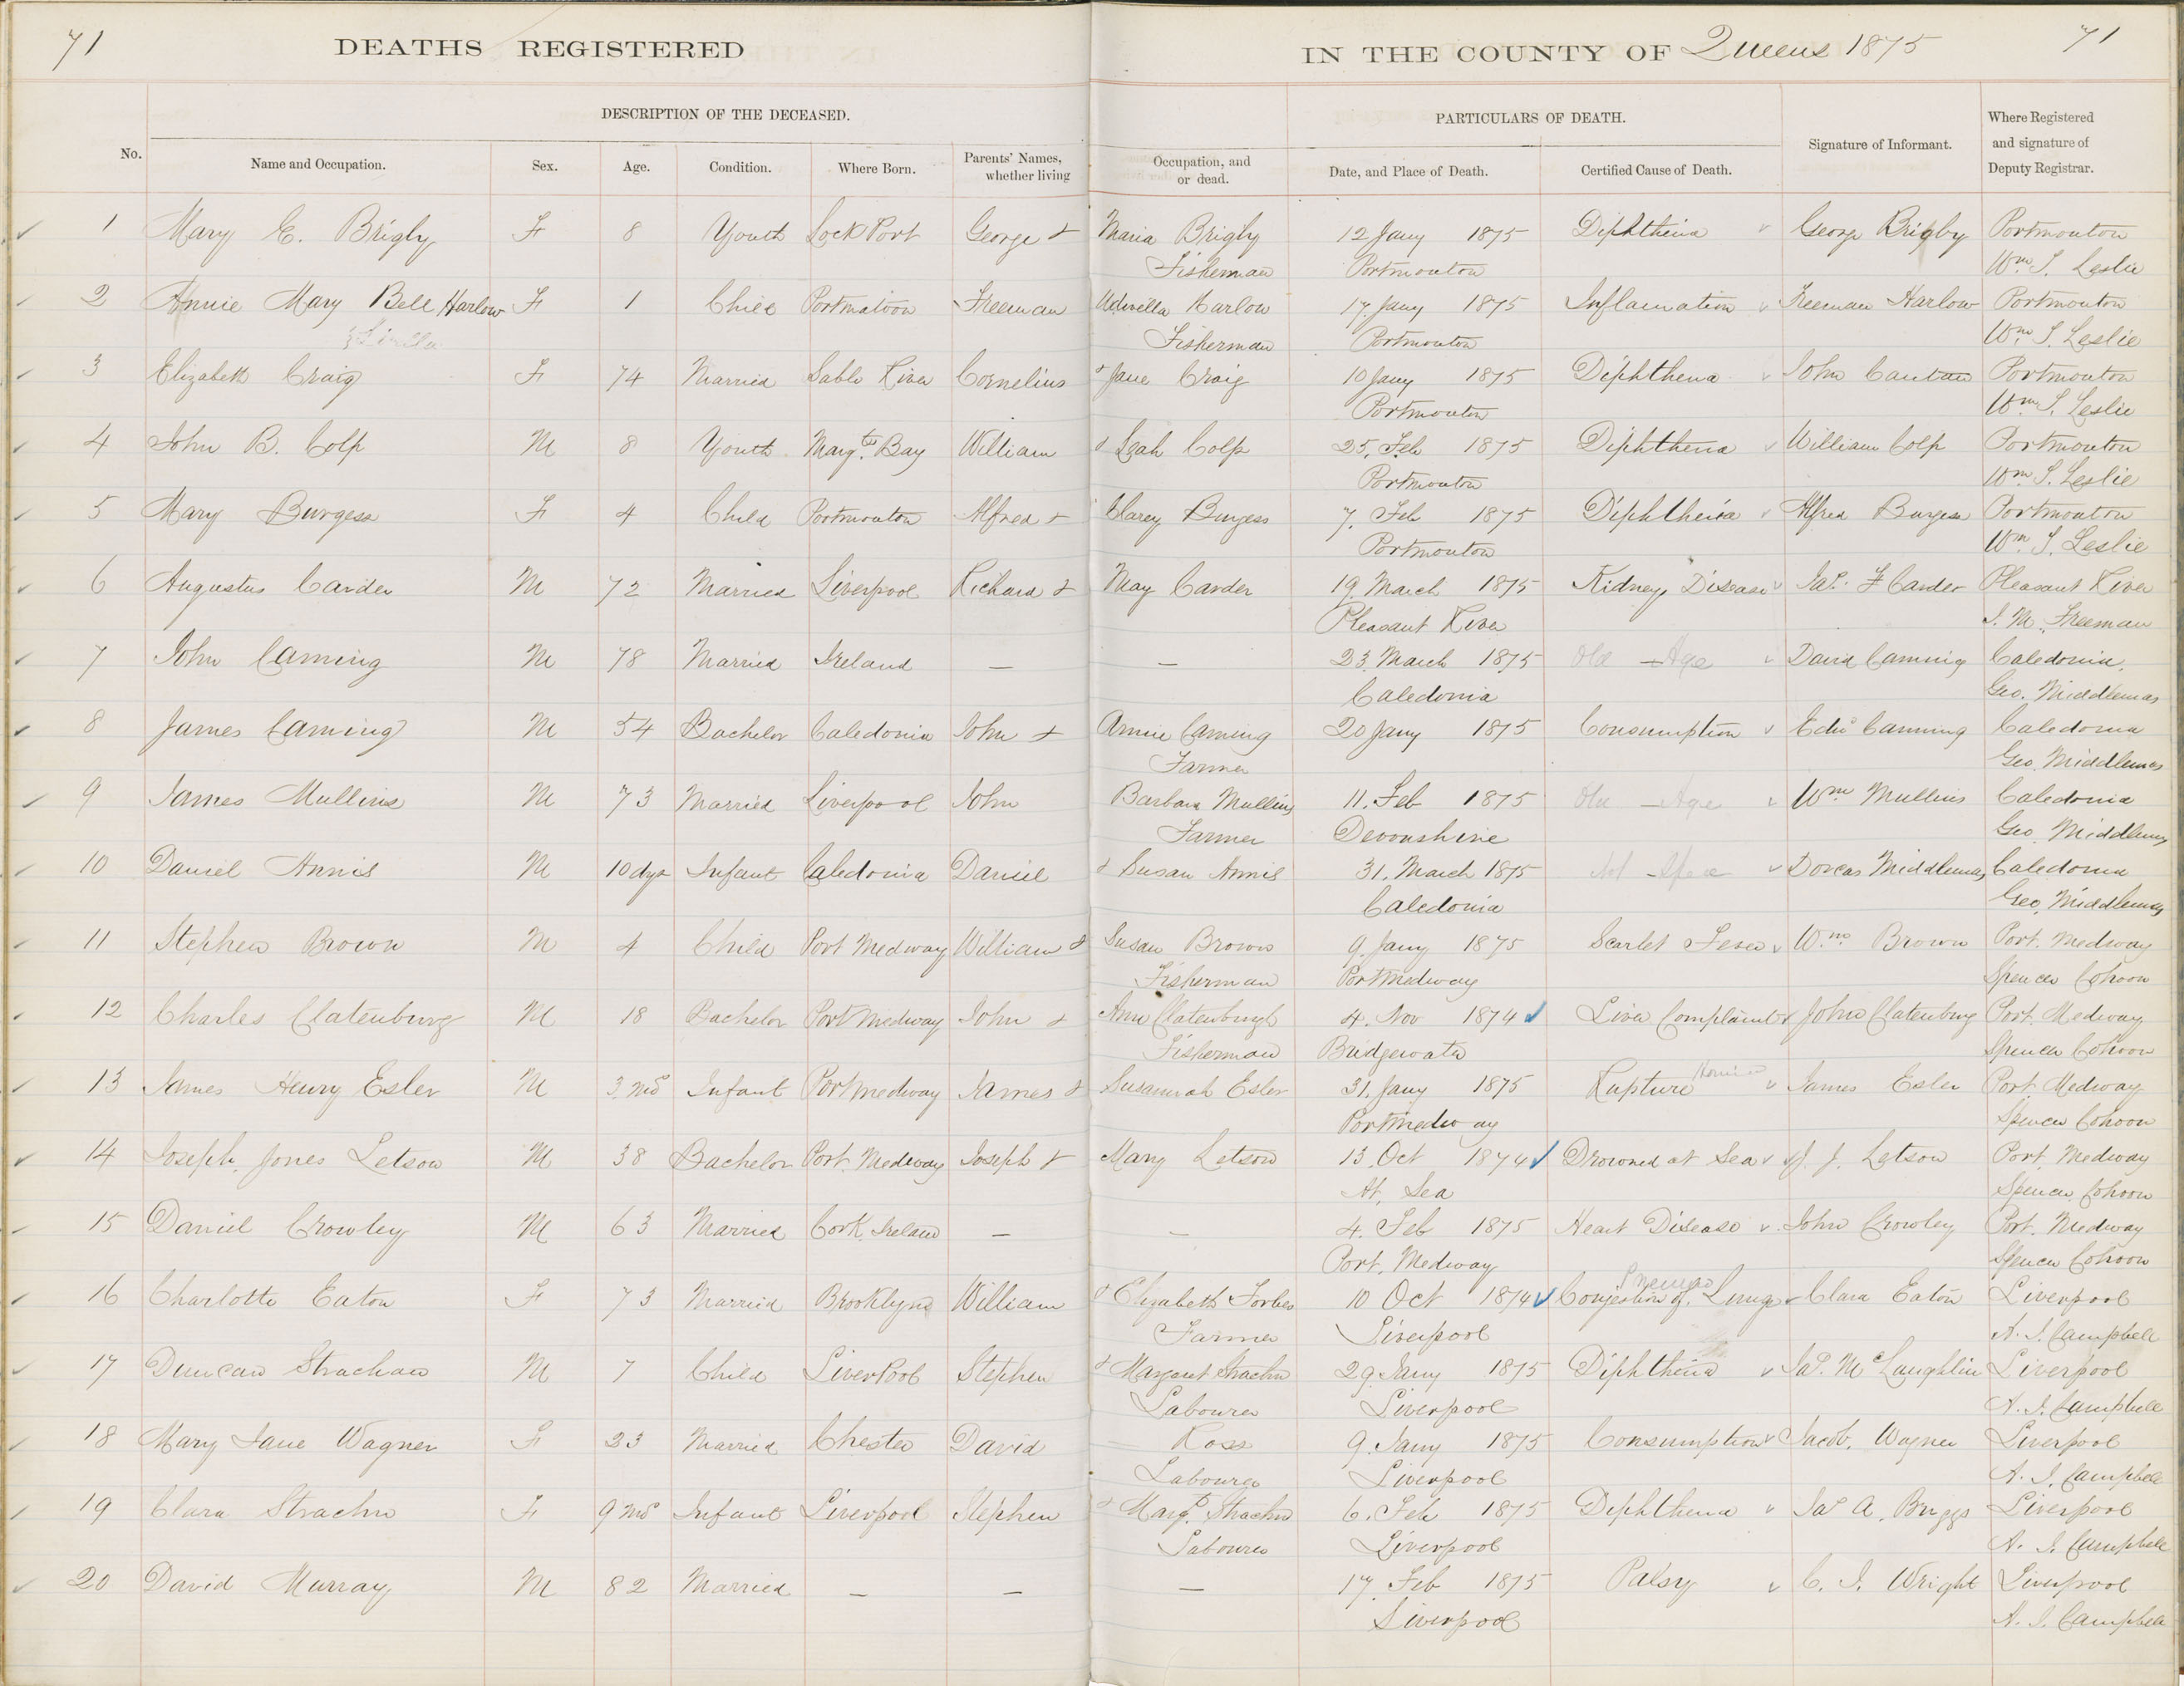 71 DEATHS REGISTERED IN THE COUNTY OF Queens 1875 71
DESCRIPTION OF THE DECEASED. PARTICULARS OF DEATH.
No. Name and Occupation. Sex. Age. Condition. Where Born. Parents' Names, whether living Occupation, and or dead. Date, and Place of Death. Certified Cause of Death. Signature of Informant. Where Registered and signature of Deputy Registrar.
1 Mary E. Brigby F 8 Youth Lock Port George & Maria Brigby 12 Jany 1875 Diphtheria George Brigby Portmouton
Fisherman Portmouton Wm S. Leslie
2 Annie Mary Bell Harlow F 1 Child Portmatoon Freeman Harlow 17. Jany 1875 Inflamation Freeman Harlow Portmouton
Fisherman Portmouton Wm S. Leslie
3 Elizabeth Craig F 74 Married Sable River Cornelius & Jane Craig 10 Jany 1875 Diphtheria John Portmouton
Portmouton Wm S. Leslie
4 John B. Colp M 8 Youth Margts Bay William & Leah Colp 25. Feb 1875 Diphtheria William Colp Portmouton
Portmouton Wm S. Leslie
5 Mary Burgess F 4 Child Portmouton Alfred & Clarey Burgess 7. Feb 1875 Diphtheria Alfred Burgess Portmouton
Portmouton Wm S. Leslie
6 Augustus Carder M 72 Married Liverpool Richard & May Carder 19. March 1875 Kidney Disease Jas. F Carder Pleasant River
Pleasant River J. M. Freeman
7 John Caming M 78 Married Ireland — — 23. March 1875 Old Age David Caming Caledonia.
Caledonia Geo. Middlemas
8 James Caming M 54 Bachelor Caledonia John & Annie Caming 20 Jany 1875 Consumption Edw Canning Caledonia
Farmer Geo. Middlemas
9 James Mullins M 73 Married Liverpool John Barbara Mullins 11. Feb 1875 Old Age Wm Mullins Caledonia
Farmer Devonshire Geo. Middlemas
10 Daniel Annis M 10 dys Infant Caledonia Daniel & Susan Annis 31. March 1875 Not Spec Dorcas Middlemas Caledonia
Caledonia Geo. Middlemas
11 Stephen Brown M 4 Child Port Medway William & Susan Brown 9. Jany 1875 Scarlet Fever Wm. Brown Port. Medway
Fisherman Portmedway Spencer Cohoon
12 Charles Clatenburg M 18 Bachelor Port Medway John & Ann Clatenburgh 4. Nov 1874 Liver Complaint John Clatenburg Port. Medway
Fisherman Bridgewater Spencer Cohoon
13 James Henry Esler M 3 mos Infant Portmedway James & Susannah Esler 31. Jany 1875 Rupture James Esler Port. Medway
Portmedway Spencer Cohoon
14 Joseph. Jones Letson M 38 Bachelor Port. Medway Joseph & Mary Letson 13. Oct 1874 Drowned at Sea J. J. Letson Port. Medway
At. Sea Spencer Cohoon
15 Daniel Crowley M 63 Married Cork. Ireland — — 4. Feb 1875 Heart Disease John Crowley Port. Medway
Port. Medway Spencer Cohoon
16 Charlotte Eaton F 73 Married Brooklyn William & Elizabeth Forbes 10 Oct 1874 Conjestion of. Lungs Clara Eaton Liverpool
Farmer Liverpool A. J. Campbell
17 Duncan Strachan M 7 Child Liverpool Stephen & Margaret Strachn 29. Jany 1875 Diphtheria Jas. McLaughlin Liverpool
Labourer Liverpool A. J. Campbell
18 Mary Jane Wagner F 23 Married Chester David Ross 9. Jany 1875 Consumption Jacob. Wagner Liverpool
Labourer Liverpool A. J. Campbell
19 Clara Strachn F 9 mos Infant Liverpool Stephen & Margt. Strachn 6. Feb 1875 Diphtheria Jas A. Briggs Liverpool
Labourer Liverpool A. J. Campbell
20 David Murray M 82 Married — — — 17. Feb 1875 Palsy C. J. Wright Liverpool
Liverpool A. J. Campbell